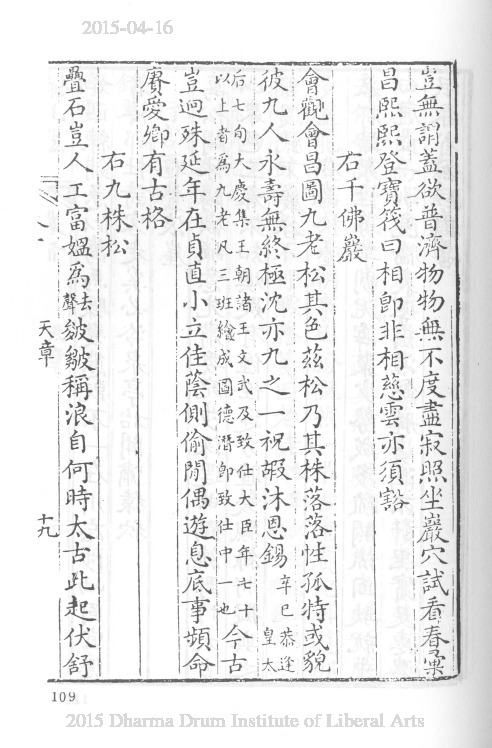 2015-04-16
豈無謂蓋欲普濟物物無不度盡寂照坐巖穴試看春㬥
昌熙熙登寶筏曰相即非相慈雲亦須豁
右千佛巖
曾觀會昌圖九老松其色茲松乃其株落落性孤特或貌
彼九人永壽無終極沈亦九之一祝嘏沐恩錫辛巳恭逢皇太
后七旬大慶集王朝諸王文武及致仕大臣年七十
以上者為九老凡三班繪成圖德潛即致仕中一也今古
豈迥殊延年在貞直小立佳蔭側偷閒偶遊息底事頻命
賡愛卿有古格
右九株松
疊石豈人工富媼為去聲皴皺稱浪自何時太古此起伏舒
天章 十九
109
2015 Dharma Drum Institute of Liberal Arts